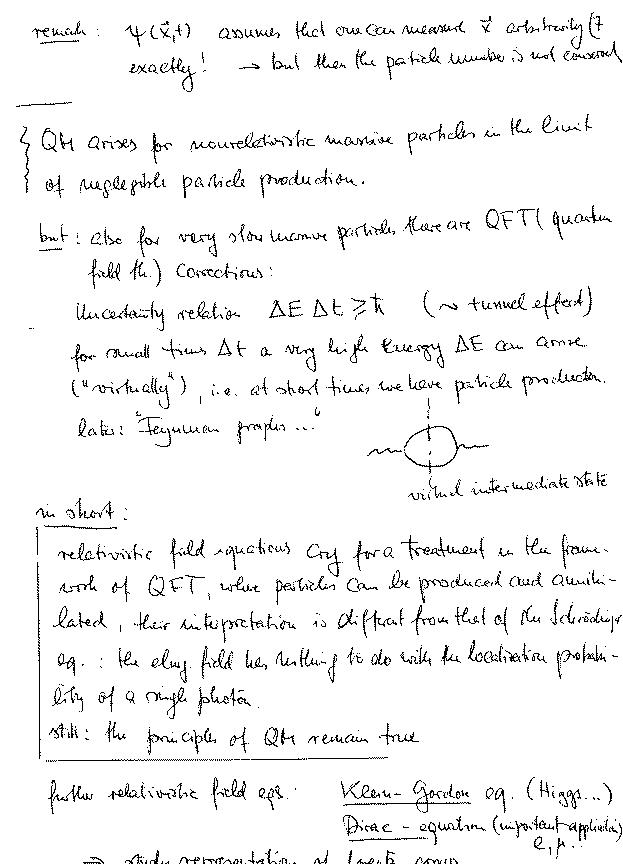 remark: ψ(x⃗,t) assumes that one can measure x⃗ arbitrarily
exactly! → but then the particle number is not conserved
QM arises for nonrelativistic massive particles in the limit
of neglegible particle production.
but: also for very slow massive particles there are QFT (quantum
field th.) corrections:
Uncertainty relation ΔE Δt ⩾ ħ (~ tunnel effect)
for small times Δt a very high energy ΔE can arise
("virtually"), i.e. at short times we have particle production.
later: "Feynman graphs..."
virtual intermediate state
in short:
relativistic field equations cry for a treatment in the frame-
work of QFT, where particles can be produced and annihi-
lated, their interpretation is different from that of the Schrödinger
eq.: the elmg. field has nothing to do with the localization probabi-
lity of a single photon.
still: the principles of QM remain true
further relativistic field eqs: Klein-Gordon eq. (Higgs...)
Dirac-equation (important application)
e, μ..
⇒ study representation of Lorentz group